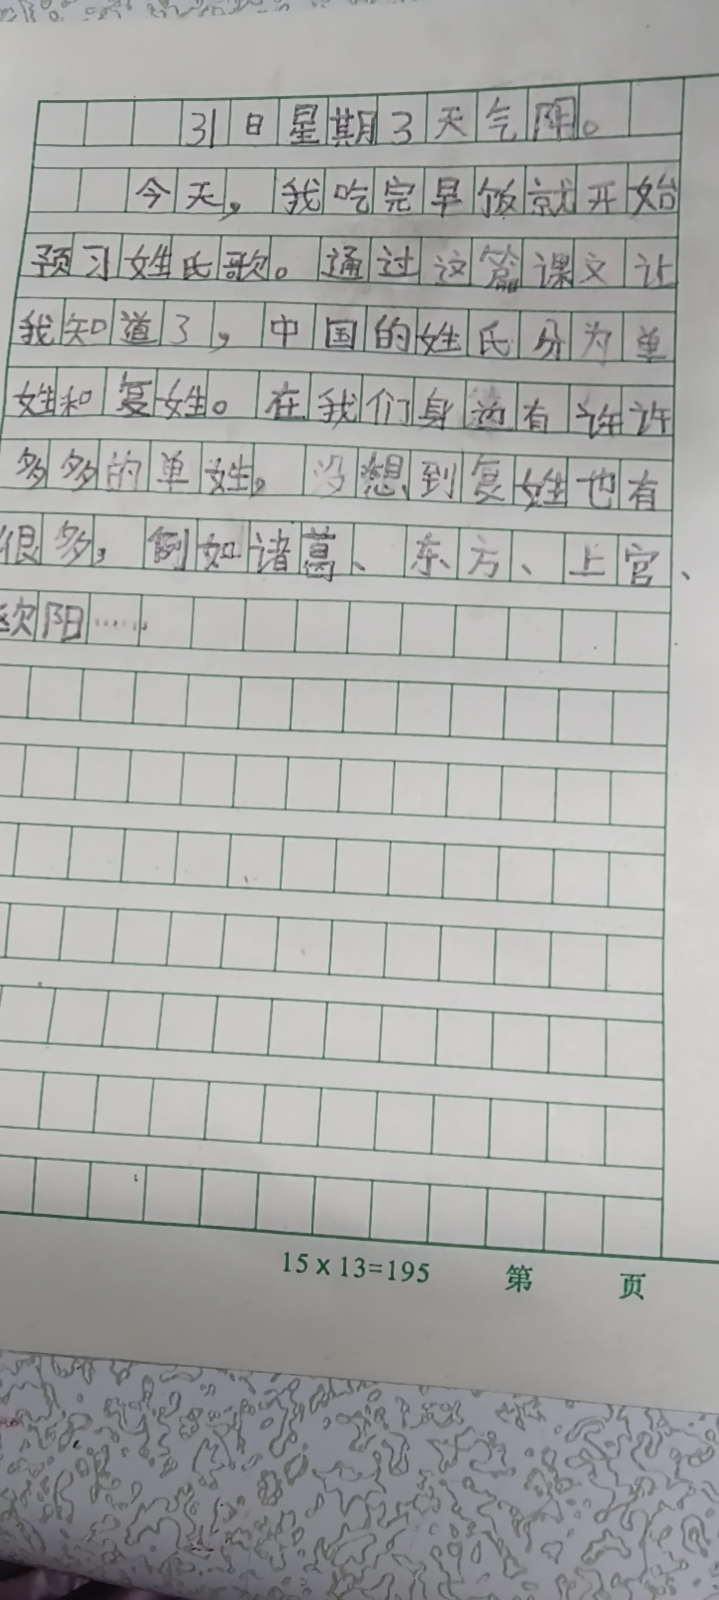 31日星期3天气阴。
今天,我吃完早饭就开始
预习姓氏歌。通过这篇课文让
我知道了,中国的姓氏分为单
姓和复姓。在我们身边有许许
多多的单姓,没想到复姓也有
很多,例如诸葛、东方、上官、
欧阳……
15×13=195 第 页